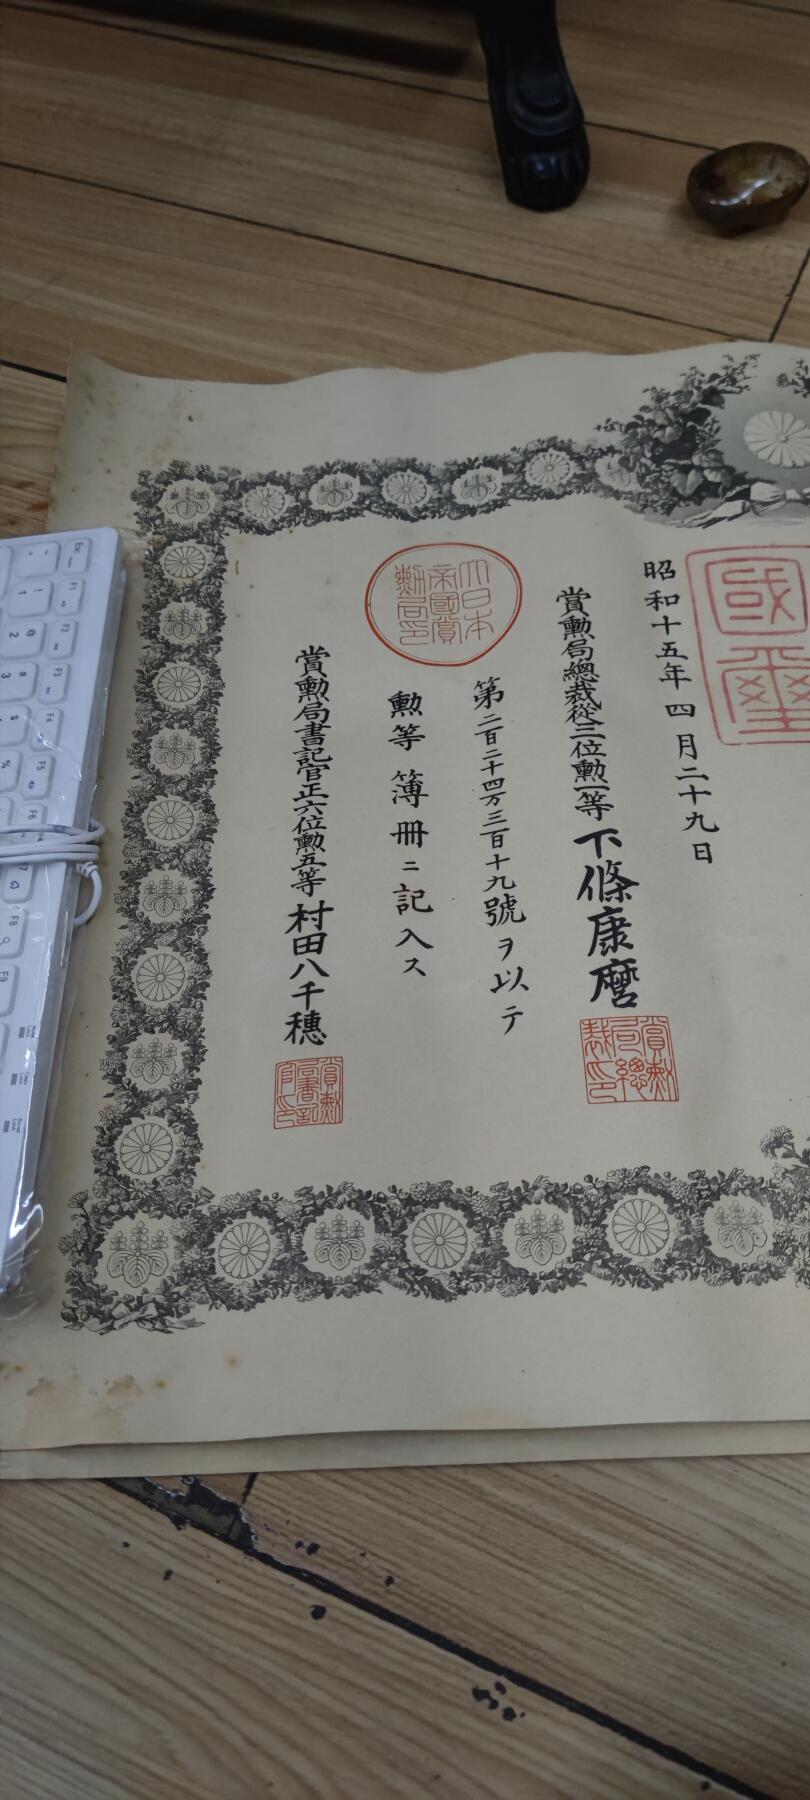 昭和十五年四月二十九日
國璽
賞勲局總裁從三位勲一等下條康麿
賞勲局總裁印
第二百二十四万三百十九號ヲ以テ
勲等簿冊ニ記入ス
大日本帝國賞勲局印
賞勲局書記官正六位勲五等村田八千穗
賞勲局書記官印
Esc
F1
F2
F3
F4
F5
F6
F8
F9
!
1
@
2
#
3
$
%